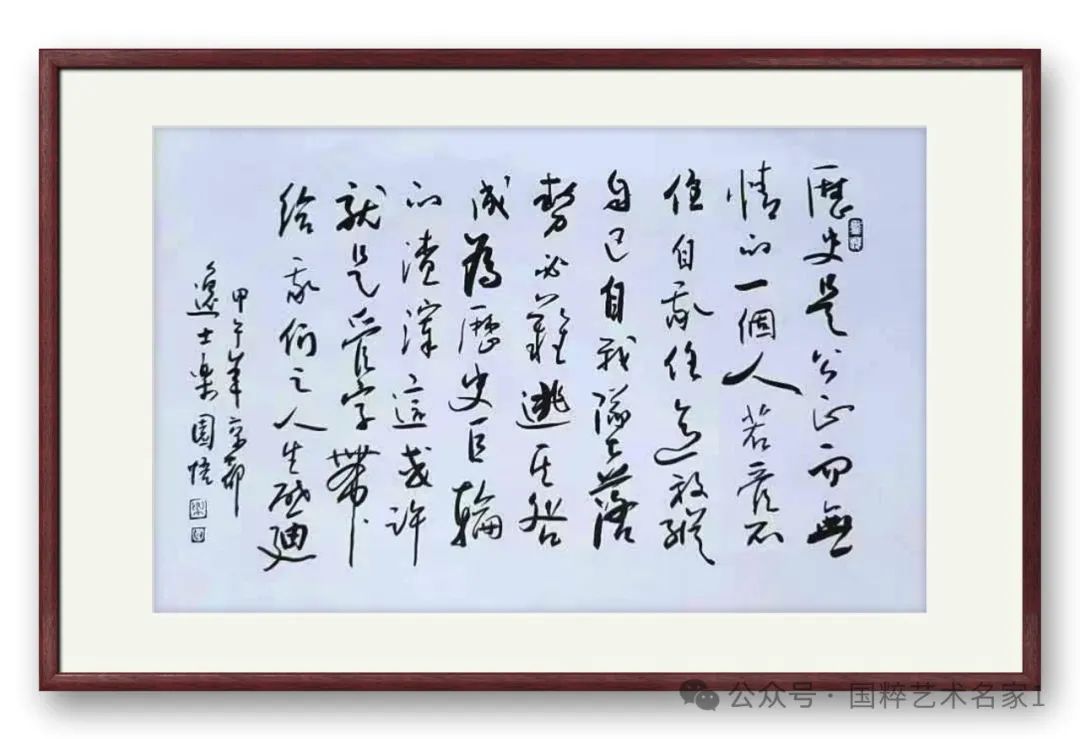 歷史是公正而無
情的一個人若管不
住自我任意放縱
自己自我墜落
勢必難逃其咎
成為歷史巨輪
的渣滓這或許
就是管字帶
給我們之人生啟迪
甲午年京都
逸士樂園悟
公众号 · 国粹艺术名家1